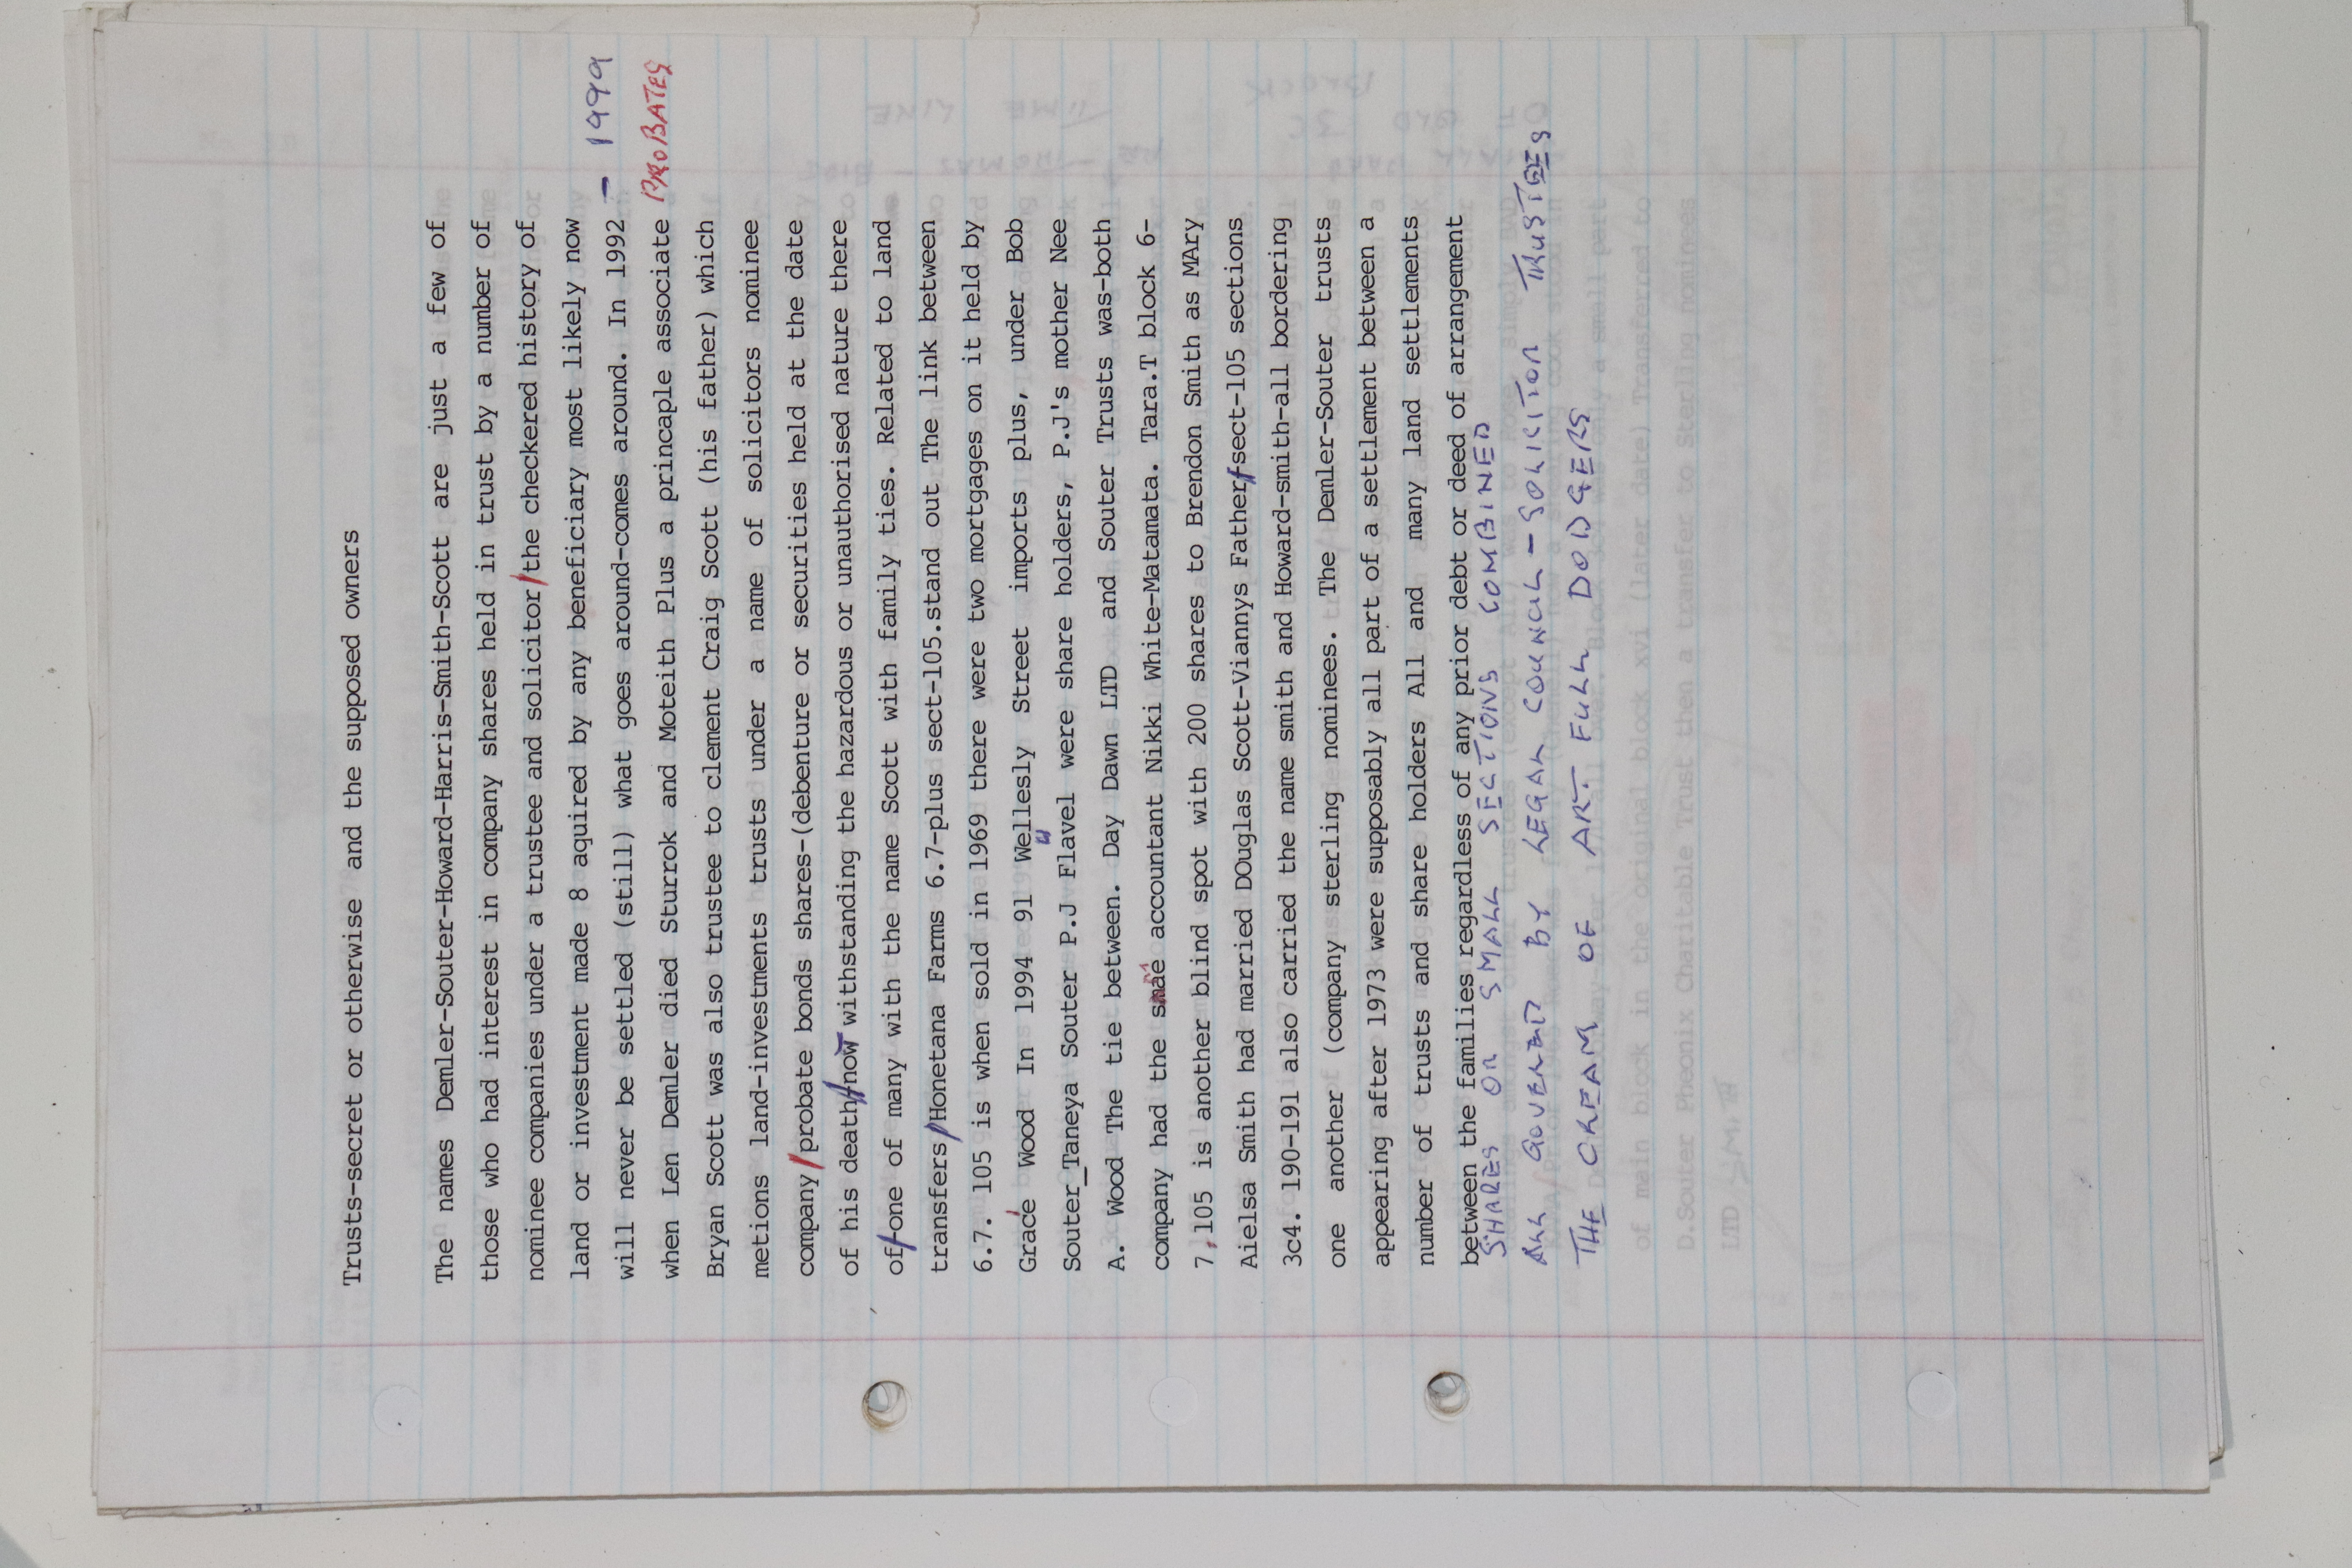 Trusts-secret or otherwise and the supposed owners
The names Demler-Souter-Howard-Harris-Smith-Scott are just a few of
those who had interest in company shares held in trust by a number of
nominee companies under a trustee and solicitor/the checkered history of
land or investment made 8 aquired by any beneficiary most likely now
will never be settled (still) what goes around-comes around. In 1992 - 1999
when Len Demler died Sturrok and Moteith Plus a princaple associate PROBATES
Bryan Scott was also trustee to clement Craig Scott (his father) which
metions land-investments trusts under a name of solicitors nominee
company/probate bonds shares-(debenture or securities held at the date
of his death/now withstanding the hazardous or unauthorised nature there
of/one of many with the name Scott with family ties. Related to land
transfers/Honetana Farms 6.7-plus sect-105.stand out The link between
6.7. 105 is when sold in 1969 there were two mortgages on it held by
Grace Wood In 1994 91 Wellesly Street imports plus, under Bob
Souter_Taneya Souter P.J Flavel were share holders, P.J's mother Nee
A. Wood The tie between. Day Dawn LTD and Souter Trusts was-both
company had the smae accountant Nikki White-Matamata. Tara.T block 6-
7,105 is another blind spot with 200 shares to Brendon Smith as MAry
Aielsa Smith had married DOuglas Scott-Viannys Father/sect-105 sections
3c4. 190-191 also carried the name smith and Howard-smith-all bordering
one another (company sterling nominees. The Demler-Souter trusts
appearing after 1973 were supposably all part of a settlement between a
number of trusts and share holders All and many land settlements
between the families regardless of any prior debt or deed of arrangement
SHARES OR SMALL SECTIONS COMBINED
ALL GOVENED BY LEGAL COUNCIL - SOLICITOR TRUSTEES
THE CREAM OF ART FULL DODGERS
of main block in the original block xvi (later date) Transferred to
D.Souter Pheonix Charitable Trust then a transfer to Sterling nominees
LTD